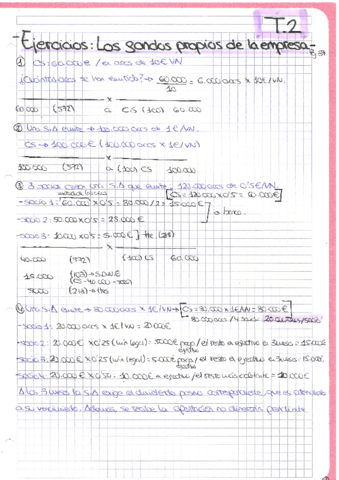 T.2
-Ejercicios: Los fondos propios de la empresa-
① CS: 60.000€ / en accs de 10€ VN
¿Cuántas accs se han emitido? → 60.000 / 10 = 6.000 accs x 10€/VN.
x
60.000 (572) a CS (100) 60.000
② Una S.A emite → 100.000 accs de 1€/VN.
CS → 100.000€ (100.000 accs x 1€/VN)
x
100.000 (572) a (100) CS 100.000
③ 3 socios crean una S.A que emite: 120.000 accs de 0'5€/VN
[CS = 120.000 x 0'5 = 60.000€]
- socio 1: 60.000 x 0'5 = 30.000 / 2 = 15.000€
- socio 2: 50.000 x 0'5 = 25.000€
- socio 3: 10.000 x 0'5 = 5.000€
x
40.000 (572) (100) CS 60.000
15.000
5000 (218)
④ Una S.A emite → 80.000 accs x 1€/VN → [CS = 80.000 x 1€/VN = 80.000€]
80.000 accs / 4 socios = 20.000 accs/socio
- socio 1: 20.000 accs x 1€/VN = 20.000€
- socio 2: 20.000€ x 0'25 (mín legal): 5000€ / el resto en efectivo en 3 meses = 15.000€
- socio 3: 20.000€ x 0'25 (mín legal): 5000€ / el resto en efectivo en 3 meses: 15.000€
- socio 4: 20.000€ x 0'50 = 10.000€ en efectivo / el resto = 10.000€
A los 3 meses la S.A exige el dividendo pasivo correspondiente, que es atendido
a su vencimiento. Además se recibe la aportación no dineraria pendiente.